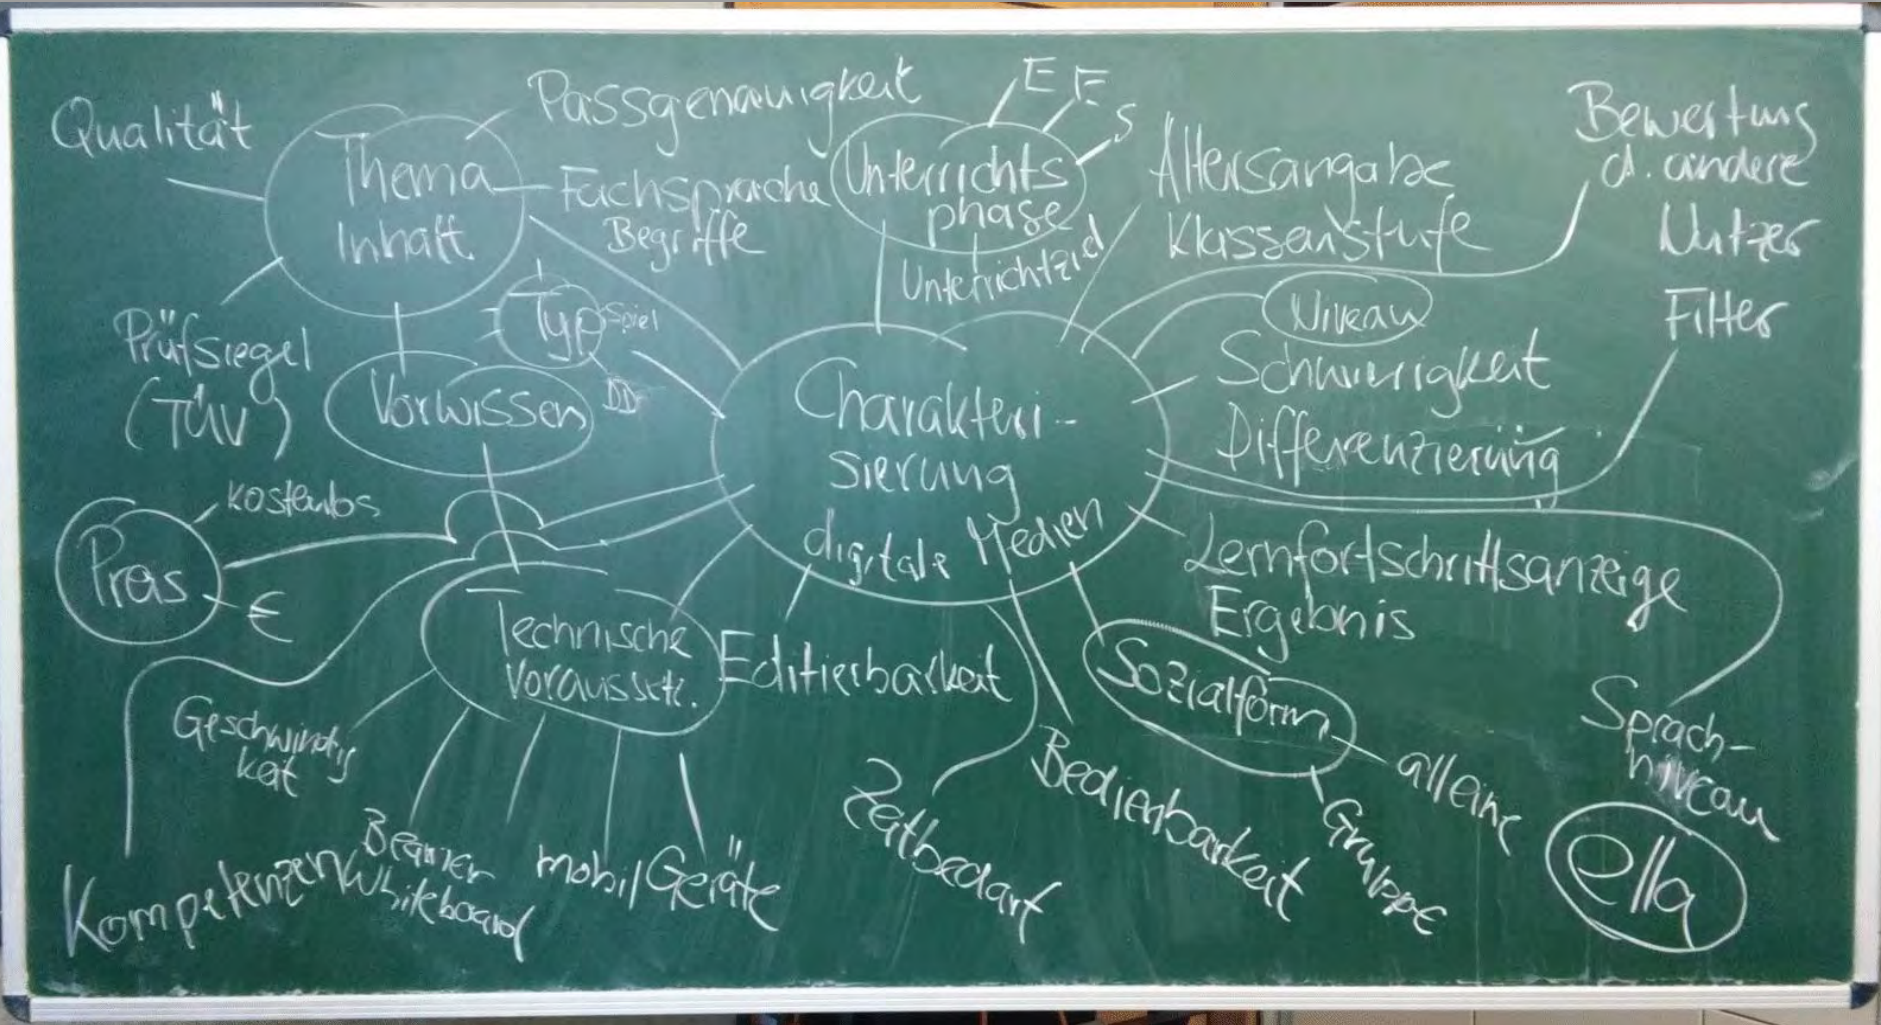 Qualität
Thema
Inhalt
Passgenauigkeit
Fachsprache
Begriffe
Prüfsiegel
(TÜV)
Typ
Spiel
DD
Vorwissen
Unterrichts
phase
E
E
S
Unterrichtziel
Altersangabe
Klassenstufe
Bewertung
d. andere
Nutzer
Filter
Niveau
Schwierigkeit
Differenzierung
Charakteri-
sierung
digitale Medien
kostenlos
Preis
€
Technische
Voraussetz.
Editierbarkeit
Lernfortschrittsanzeige
Ergebnis
Sozialform
alleine
Gruppe
Sprach-
niveau
Geschwindig
keit
Kompetenzen
Beamer
Whiteboard
mobil
Geräte
Zeitbedarf
Bedienbarkeit
ella